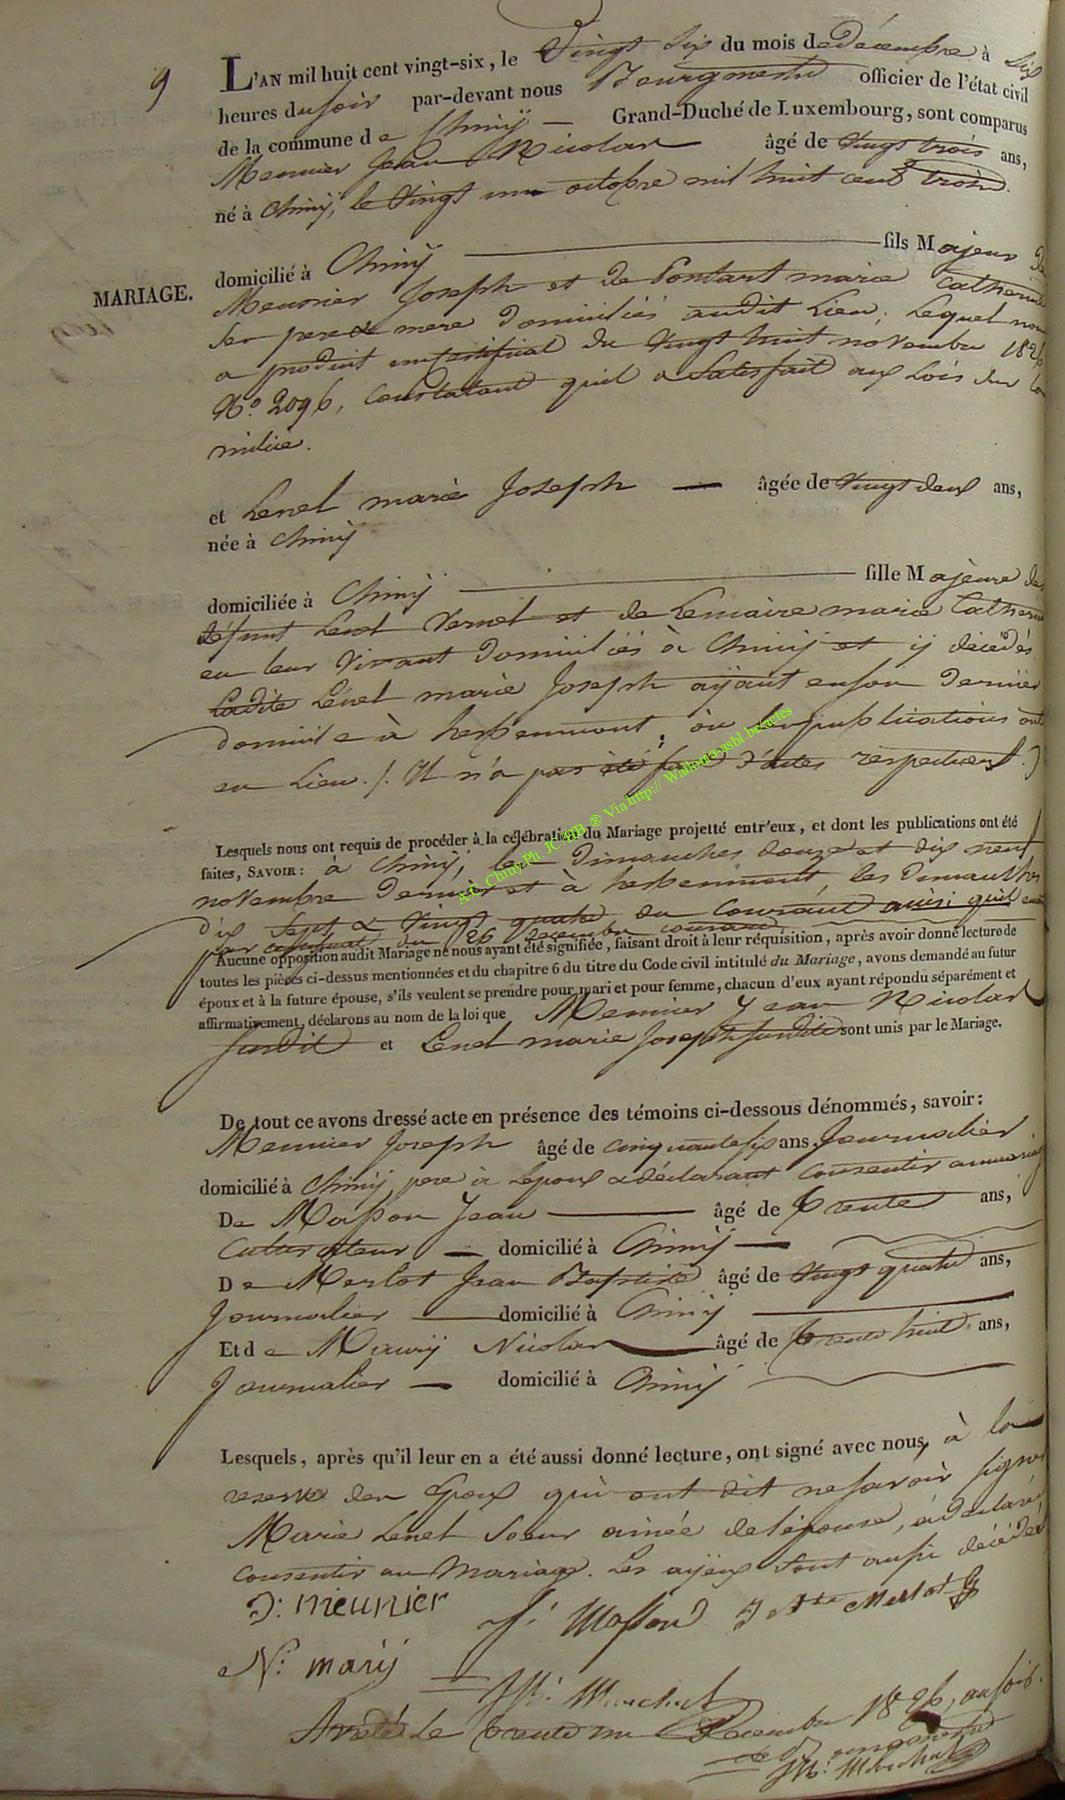 9
L'AN mil huit cent vingt-six, le Vingt Six du mois de décembre à Six
heures du soir par-devant nous Bourgmestre officier de l'état civil
de la commune de Chiny — Grand-Duché de Luxembourg, sont comparus
Meunier Jean Nicolas âgé de Vingt trois ans,
né à Chiny, le Vingt un octobre mil huit cent trois.
domicilié à Chiny fils Majeur de
MARIAGE.
Meunier Joseph et de Pontart marie Catherine
Ses pere & mere domiciliés audit Lieu; Lequel nous
a produit un certificat du Vingt huit novembre 1826
No. 2096, constatant quil a Satisfait aux Lois sur la
milice.
et Lenel marie Joseph — âgée de Vingt deux ans,
née à Chiny
domiciliée à Chiny fille Majeure des
défunt Lenel Vernel et de Lemaire marie Catherine
en leur Vivant domiciliés à Chiny et y décédés
Ladite Lénel marie Joseph ayant enson dernier
domicile à herbeumont, où les publications ont
eu Lieu. / Il n'a pas été d'actes respectueux.)
Lesquels nous ont requis de procéder à la célébration du Mariage projetté entr'eux, et dont les publications ont été
faites, SAVOIR: à Chiny, les dimanches douze et dix neuf
novembre dernier et à herbeumont, les dimanches
dix Sept & Vingt quatre du Courant ainsi quil
par certificat du 26 Decembre courant
Aucune opposition audit Mariage ne nous ayant été signifiée, faisant droit à leur réquisition, après avoir donné lecture de
toutes les pièces ci-dessus mentionnées et du chapitre 6 du titre du Code civil intitulé du Mariage, avons demandé au futur
époux et à la future épouse, s'ils veulent se prendre pour mari et pour femme, chacun d'eux ayant répondu séparément et
affirmativement, déclarons au nom de la loi que Meunier Jean Nicolas
Susdit et Lenel marie Joseph susdite sont unis par le Mariage.
De tout ce avons dressé acte en présence des témoins ci-dessous dénommés, savoir:
Meunier Joseph âgé de cinquante six ans, Journalier
domicilié à Chiny, pere à Lepoux & déclarant consentir au mariage
De Masson Jean âgé de trente ans,
Cultivateur — domicilié à Chiny —
De Merlot Jean Baptiste âgé de Vingt quatre ans,
Journalier domicilié à Chiny
Et de Maury Nicolas âgé de trente huit ans,
Journalier — domicilié à Chiny
Lesquels, après qu'il leur en a été aussi donné lecture, ont signé avec nous, à la
reserve des Epoux qui ont dit ne Savoir Signer
Marie Lenel Soeur ainée de l'épouse, a déclaré
Consentir au Mariage. Les ayeux Sont aussi décédés
J: meunier J. Masson J Bte Merlot
N: mary
JH: Marchal
Arrêté le trente un Decembre 1826, au soir.
JH: Marchal
A.C. Chiny Ph. JC-HB ® Via http://Wallonia-asbl.be/actes